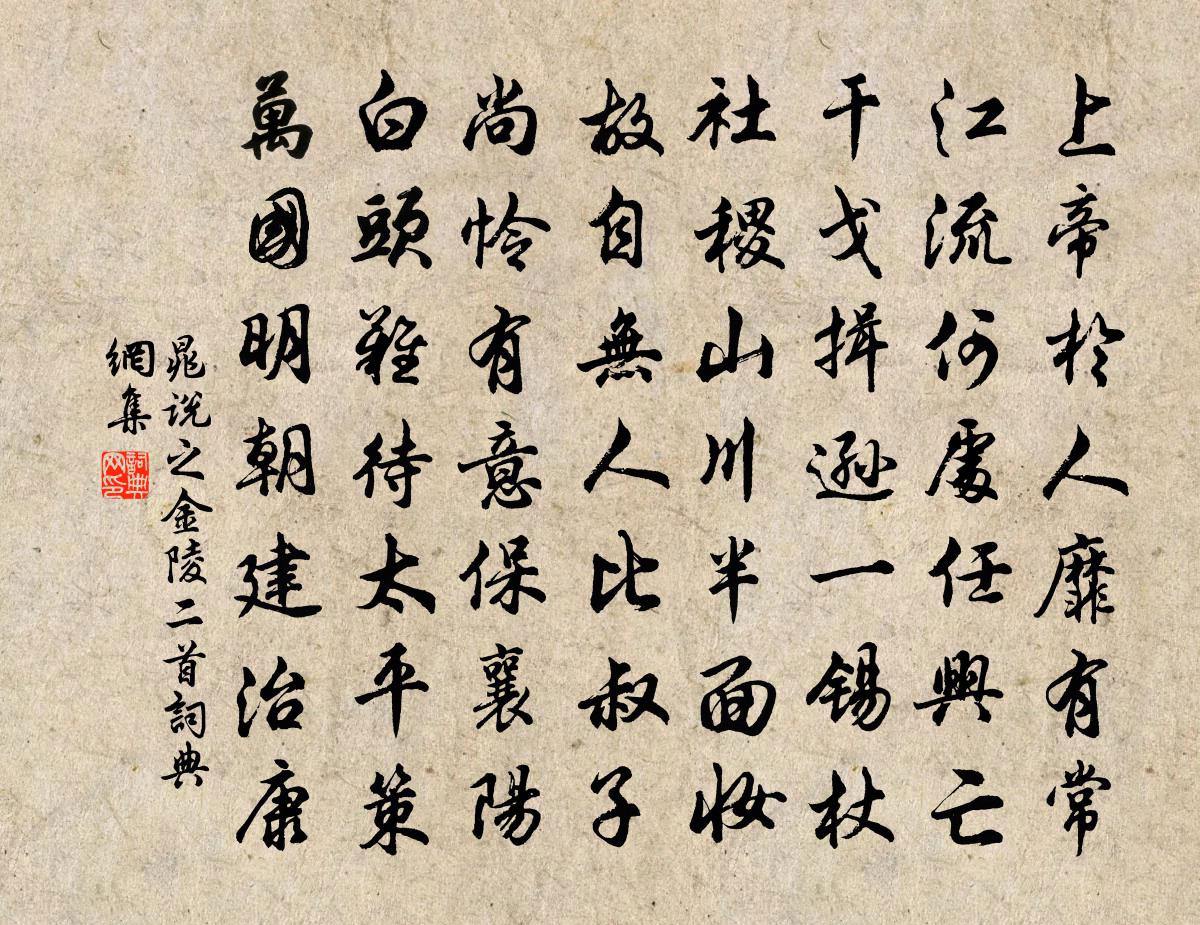 上帝於人靡有常
江流何處任興亡
干戈揖遜一錫杖
社稷山川半面妆
故自無人比叔子
尚怜有意保襄陽
白頭難待太平策
萬國明朝建治康
晁說之金陵二首詞典
網集
詞典
网印